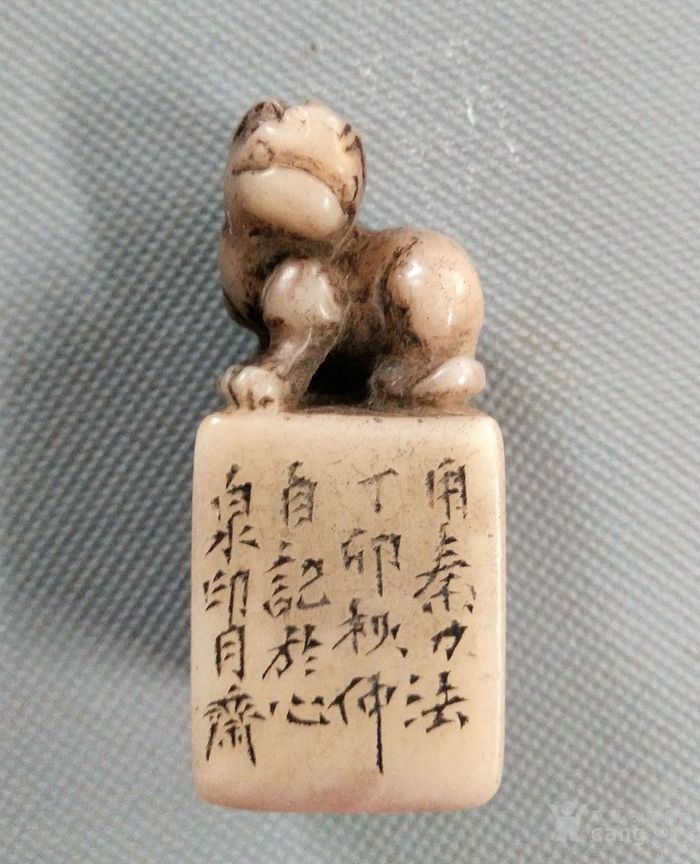 用秦刀法
丁卯秋仲
自記於心
泉印月齋
cang.com